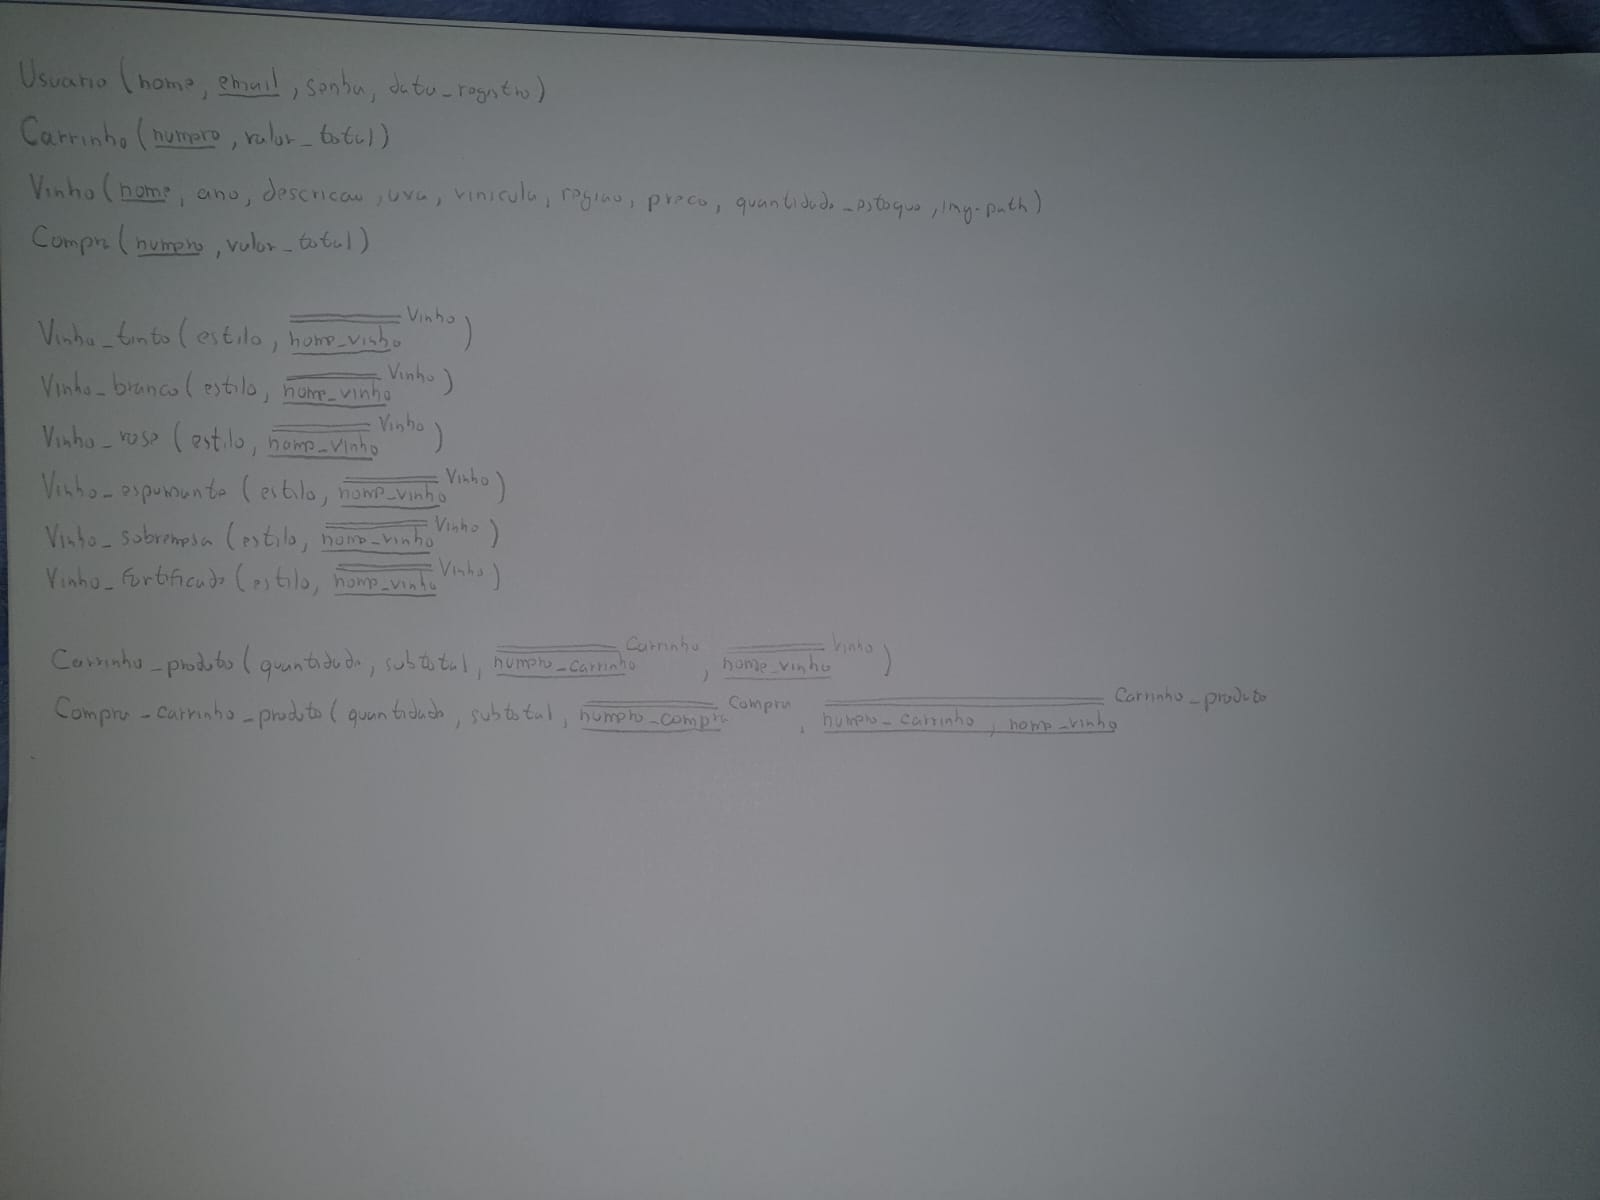 Usuario (nome, email, senha, data_registro)
Carrinho (numero, valor_total)
Vinho (nome, ano, descricao, uva, vinicula, regiao, preco, quantidade_estoque, img-path)
Compra (numero, valor_total)
Vinho_tinto (estilo, nome_vinho Vinho)
Vinho_branco (estilo, nome_vinho Vinho)
Vinho_rose (estilo, nome_vinho Vinho)
Vinho_espumante (estilo, nome_vinho Vinho)
Vinho_sobremesa (estilo, nome_vinho Vinho)
Vinho_fortificado (estilo, nome_vinho Vinho)
Carrinho_produto (quantidade, subtotal, numero_carrinho Carrinho, nome_vinho Vinho)
Compra_carrinho_produto (quantidade, subtotal, numero_compra Compra, numero_carrinho, nome_vinho Carrinho_produto